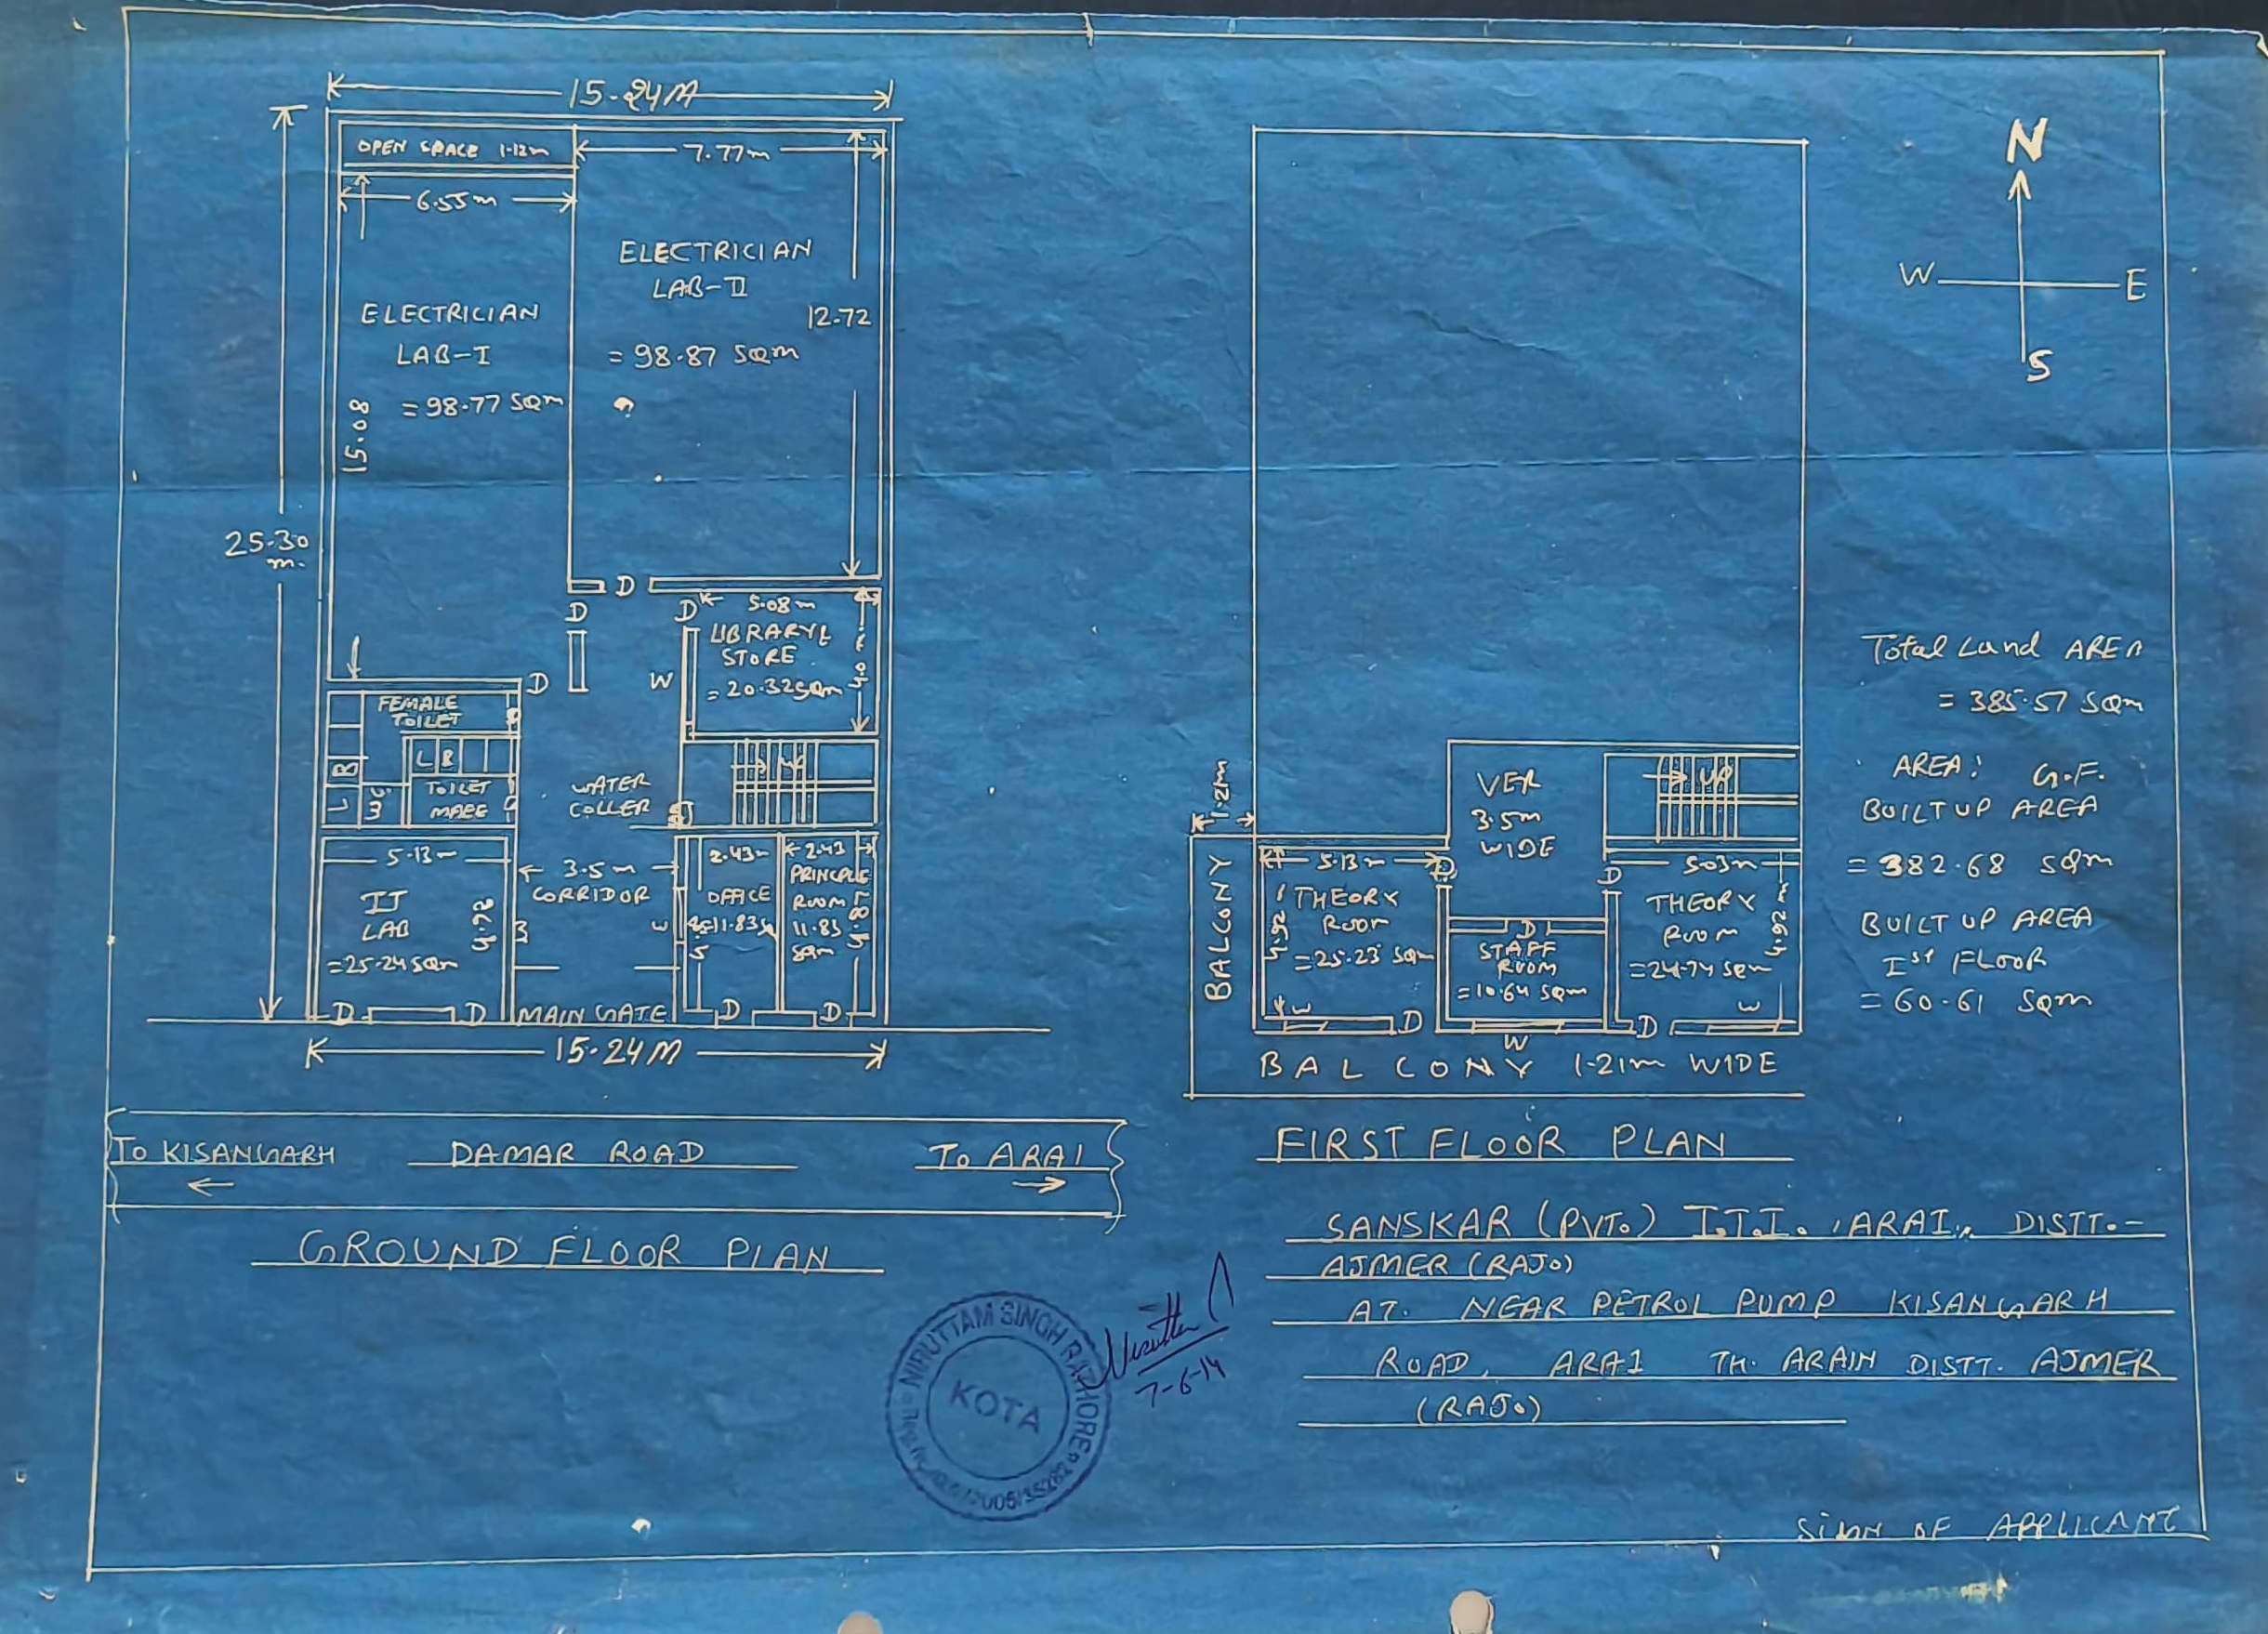 15.24M
OPEN SPACE 1.12m
7.77m
6.55m
ELECTRICIAN
LAB-II
= 98.87 SQm
12.72
ELECTRICIAN
LAB-I
= 98.77 SQm
15.08
25.30
m.
D
D
D
5.08m
LIBRARY &
STORE
= 20.32 SQm
W
D
FEMALE
TOILET
L B
TOILET
MALE
B
L
WATER
COLLER
UP
5.13m
IT
LAB
= 25.24 SQm
4.92
3.5m
CORRIDOR
W
2.43m
OFFICE
= 11.83 SQ
2.43
PRINCIPLE
ROOM
11.83
SQm
D
D
MAIN GATE
D
D
15.24M
TO KISANGARH
DAMAR ROAD
TO ARAI
GROUND FLOOR PLAN
1.2m
BALCONY
VER
3.5m
WIDE
UP
5.13m
THEORY
ROOM
= 25.23 SQm
4.92
W
D
D
D
STAFF
ROOM
= 10.64 SQm
W
D
5.03m
THEORY
ROOM
= 24.74 SQm
4.92m
W
D
BALCONY 1.21m WIDE
FIRST FLOOR PLAN
N
W
E
S
Total Land AREA
= 385.57 SQm
AREA: G.F.
BUILT UP AREA
= 382.68 SQm
BUILT UP AREA
Ist FLOOR
= 60.61 SQm
SANSKAR (PVT.) I.T.I. ARAI, DISTT.-
AJMER (RAJ.)
AT. NEAR PETROL PUMP KISANGARH
ROAD, ARAI TH. ARAIN DISTT. AJMER
(RAJ.)
NIRUTTAM SINGH RATHORE
KOTA
7-6-14
SIGN OF APPLICANT